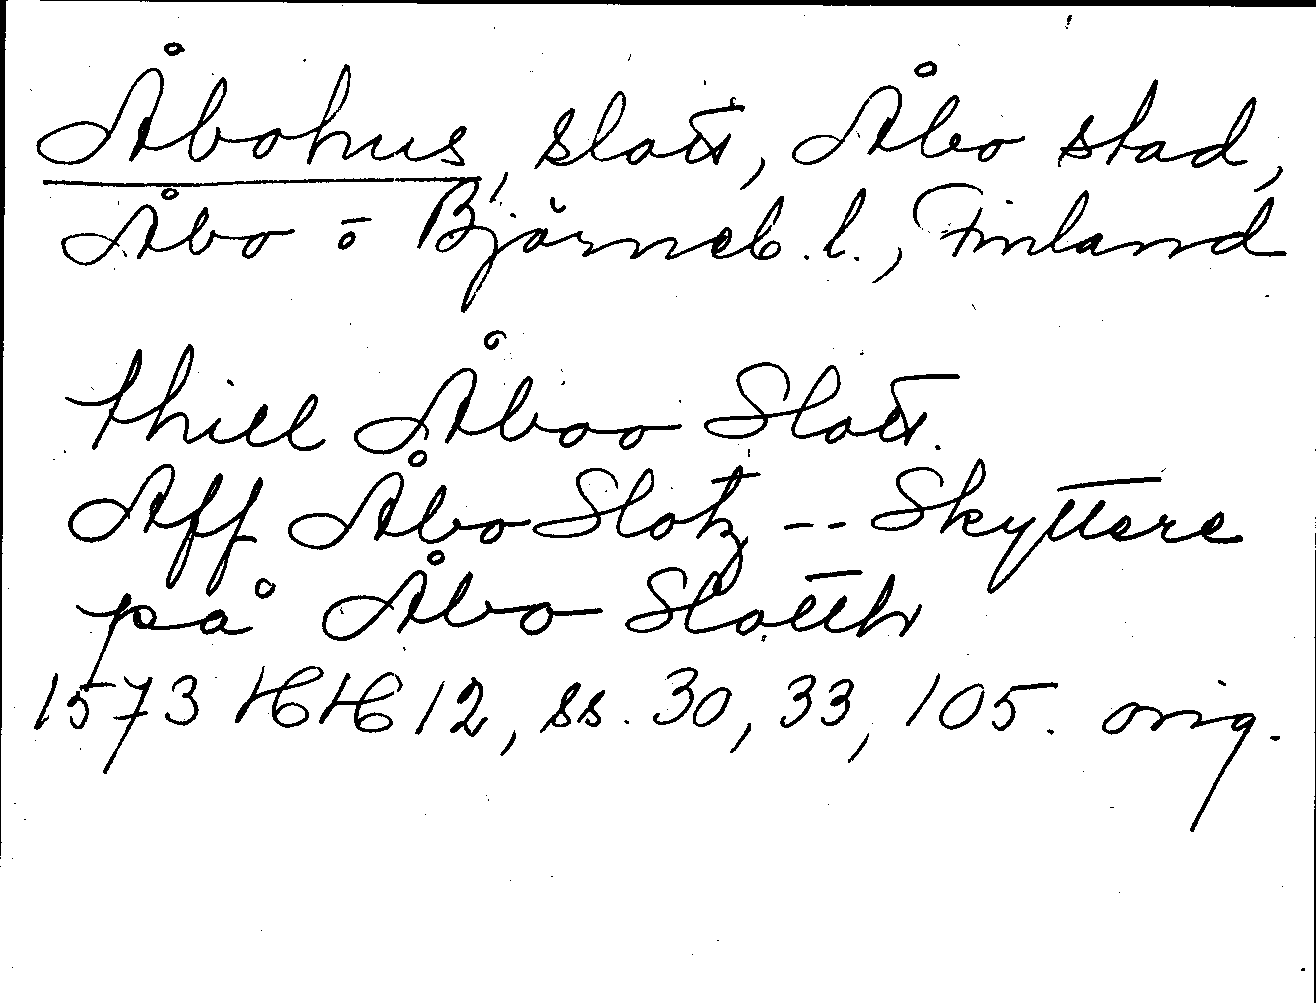 Åbohus, slott, Åbo stad,
Åbo o Björneb. l., Finland
thill Åboo Slott.
Aff Åbo Slotz -- Skyttere
på Åbo Slotth
1573 HH 12, ss. 30, 33, 105. orig.